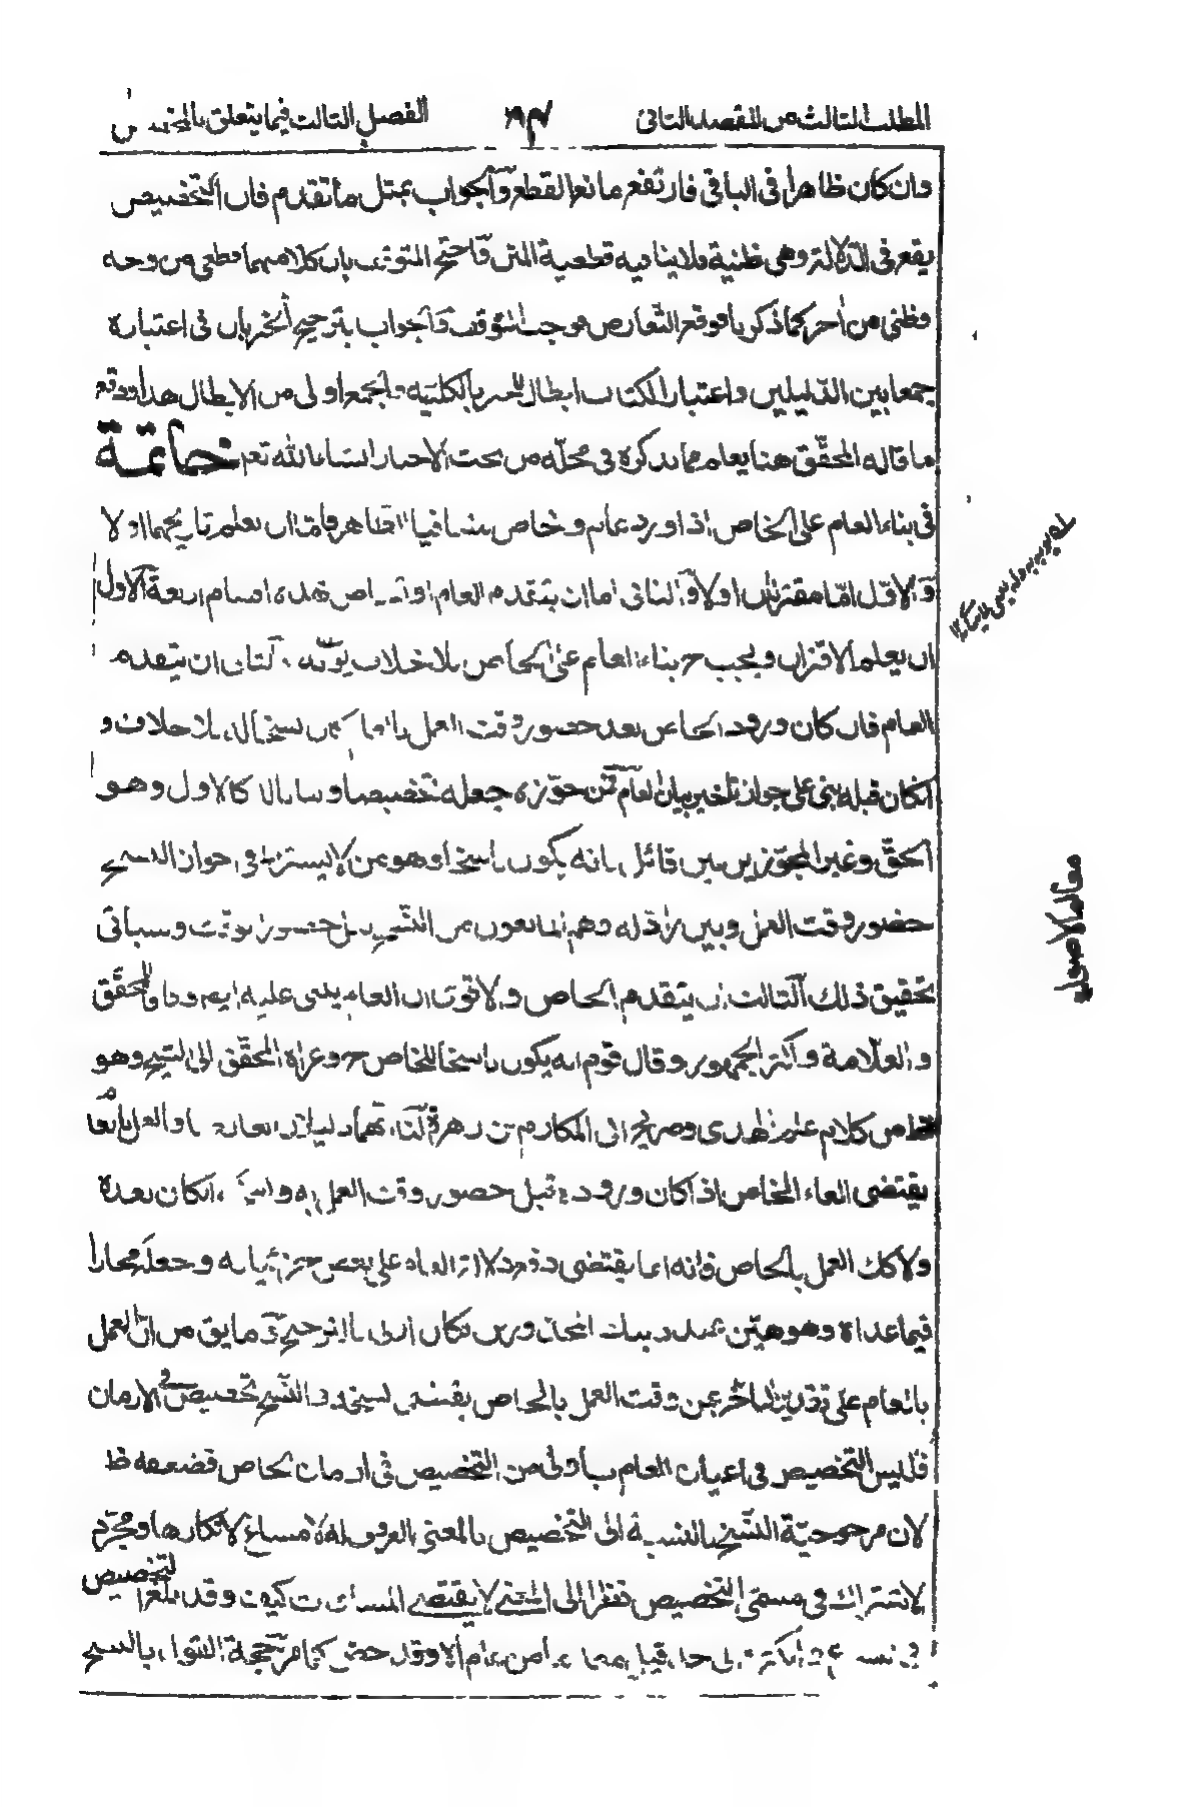 المطلب الثالث من المقصد الثاني
الفصل الثالث فيما يتعلق بالمخصص
وان كان ظاهرا في الباقي فارتفع مانع القطع والجواب بمثل ما تقدم فان التخصيص
يقع في الدلالة وهي ظنية فلا ينافيه قطعية المتن واحتج المتوقف بان كلا منهما قطعي من وجه
وظني من اخر كما ذكر فوقع التعارض فوجب التوقف والجواب بترجيح الخبر بان في اعتباره
جمعا بين الدليلين واعتبار الكتاب ابطال للخبر بالكلية والجمع اولى من الابطال هذا ودفع
ما قاله المحقق هنا يعلم مما يذكره في محله من بحث الاخبار انشاء الله تعم خاتمة
في بناء العام على الخاص اذا ورد عام وخاص متنافيا الظاهر فاما ان يعلم تاريخهما او لا
والاول اما مقترنان او لا والثاني اما ان يتقدم العام او الخاص فهذه اقسام اربعة الاول
ان يعلم الاقتران ويجب ح بناء العام على الخاص بلا خلاف الثاني ان يتقدم
العام فان كان ورود الخاص بعد حضور وقت العمل بالعام كان نسخا له بلا خلاف و
ان كان قبله بنى على جواز تاخير بيان العام فمن جوزه جعله تخصيصا وبيانا له كالاول وهو
الحق وغير المجوزين بين قائل بانه يكون ناسخا وهو من لا يشترط في جواز النسخ
حضور وقت العمل وبين راد له وهم المانعون من النسخ قبل حضور الوقت وسياتي
تحقيق ذلك الثالث ان يتقدم الخاص والاقوى ان العام يبنى عليه ايضا وفاقا للمحقق
والعلامة واكثر الجمهور وقال قوم انه يكون ناسخا للخاص ح وعزاه المحقق الى الشيخ وهو
ظاهر من كلام علم الهدى وصريح ابي المكارم بن زهرة لنا انهما دليلان تعارضا والعمل بالعام
يقتضي الغاء الخاص اذا كان وروده قبل حضور وقت العمل به ونسخه ان كان بعده
ولا كك العمل بالخاص فانه انما يقتضي دفع دلالة العام على بعض جزئياته وجعله مجازا
فيما عداه وهو هين عند ذينك المحذورين فكان اولى بالترجيح وما يق من ان العمل
بالعام على تقدير التاخر عن وقت العمل بالخاص يقتضي نسخه والنسخ تخصيص في الازمان
فليس التخصيص في اعيان العام باولى من التخصيص في ازمان الخاص فضعفه ظ
لان مرجوحية النسخ بالنسبة الى التخصيص بالمعنى المعروف لا مساغ لانكارها ومجرد
الاشتراك في مسمى التخصيص نظرا الى المعنى لا يقتضي المساواة كيف وقد بلغ التخصيص
في الكثرة الى حد قيل معه ما من عام الا وقد خص كما مر حجة القول بالنسخ
معالم الاصول